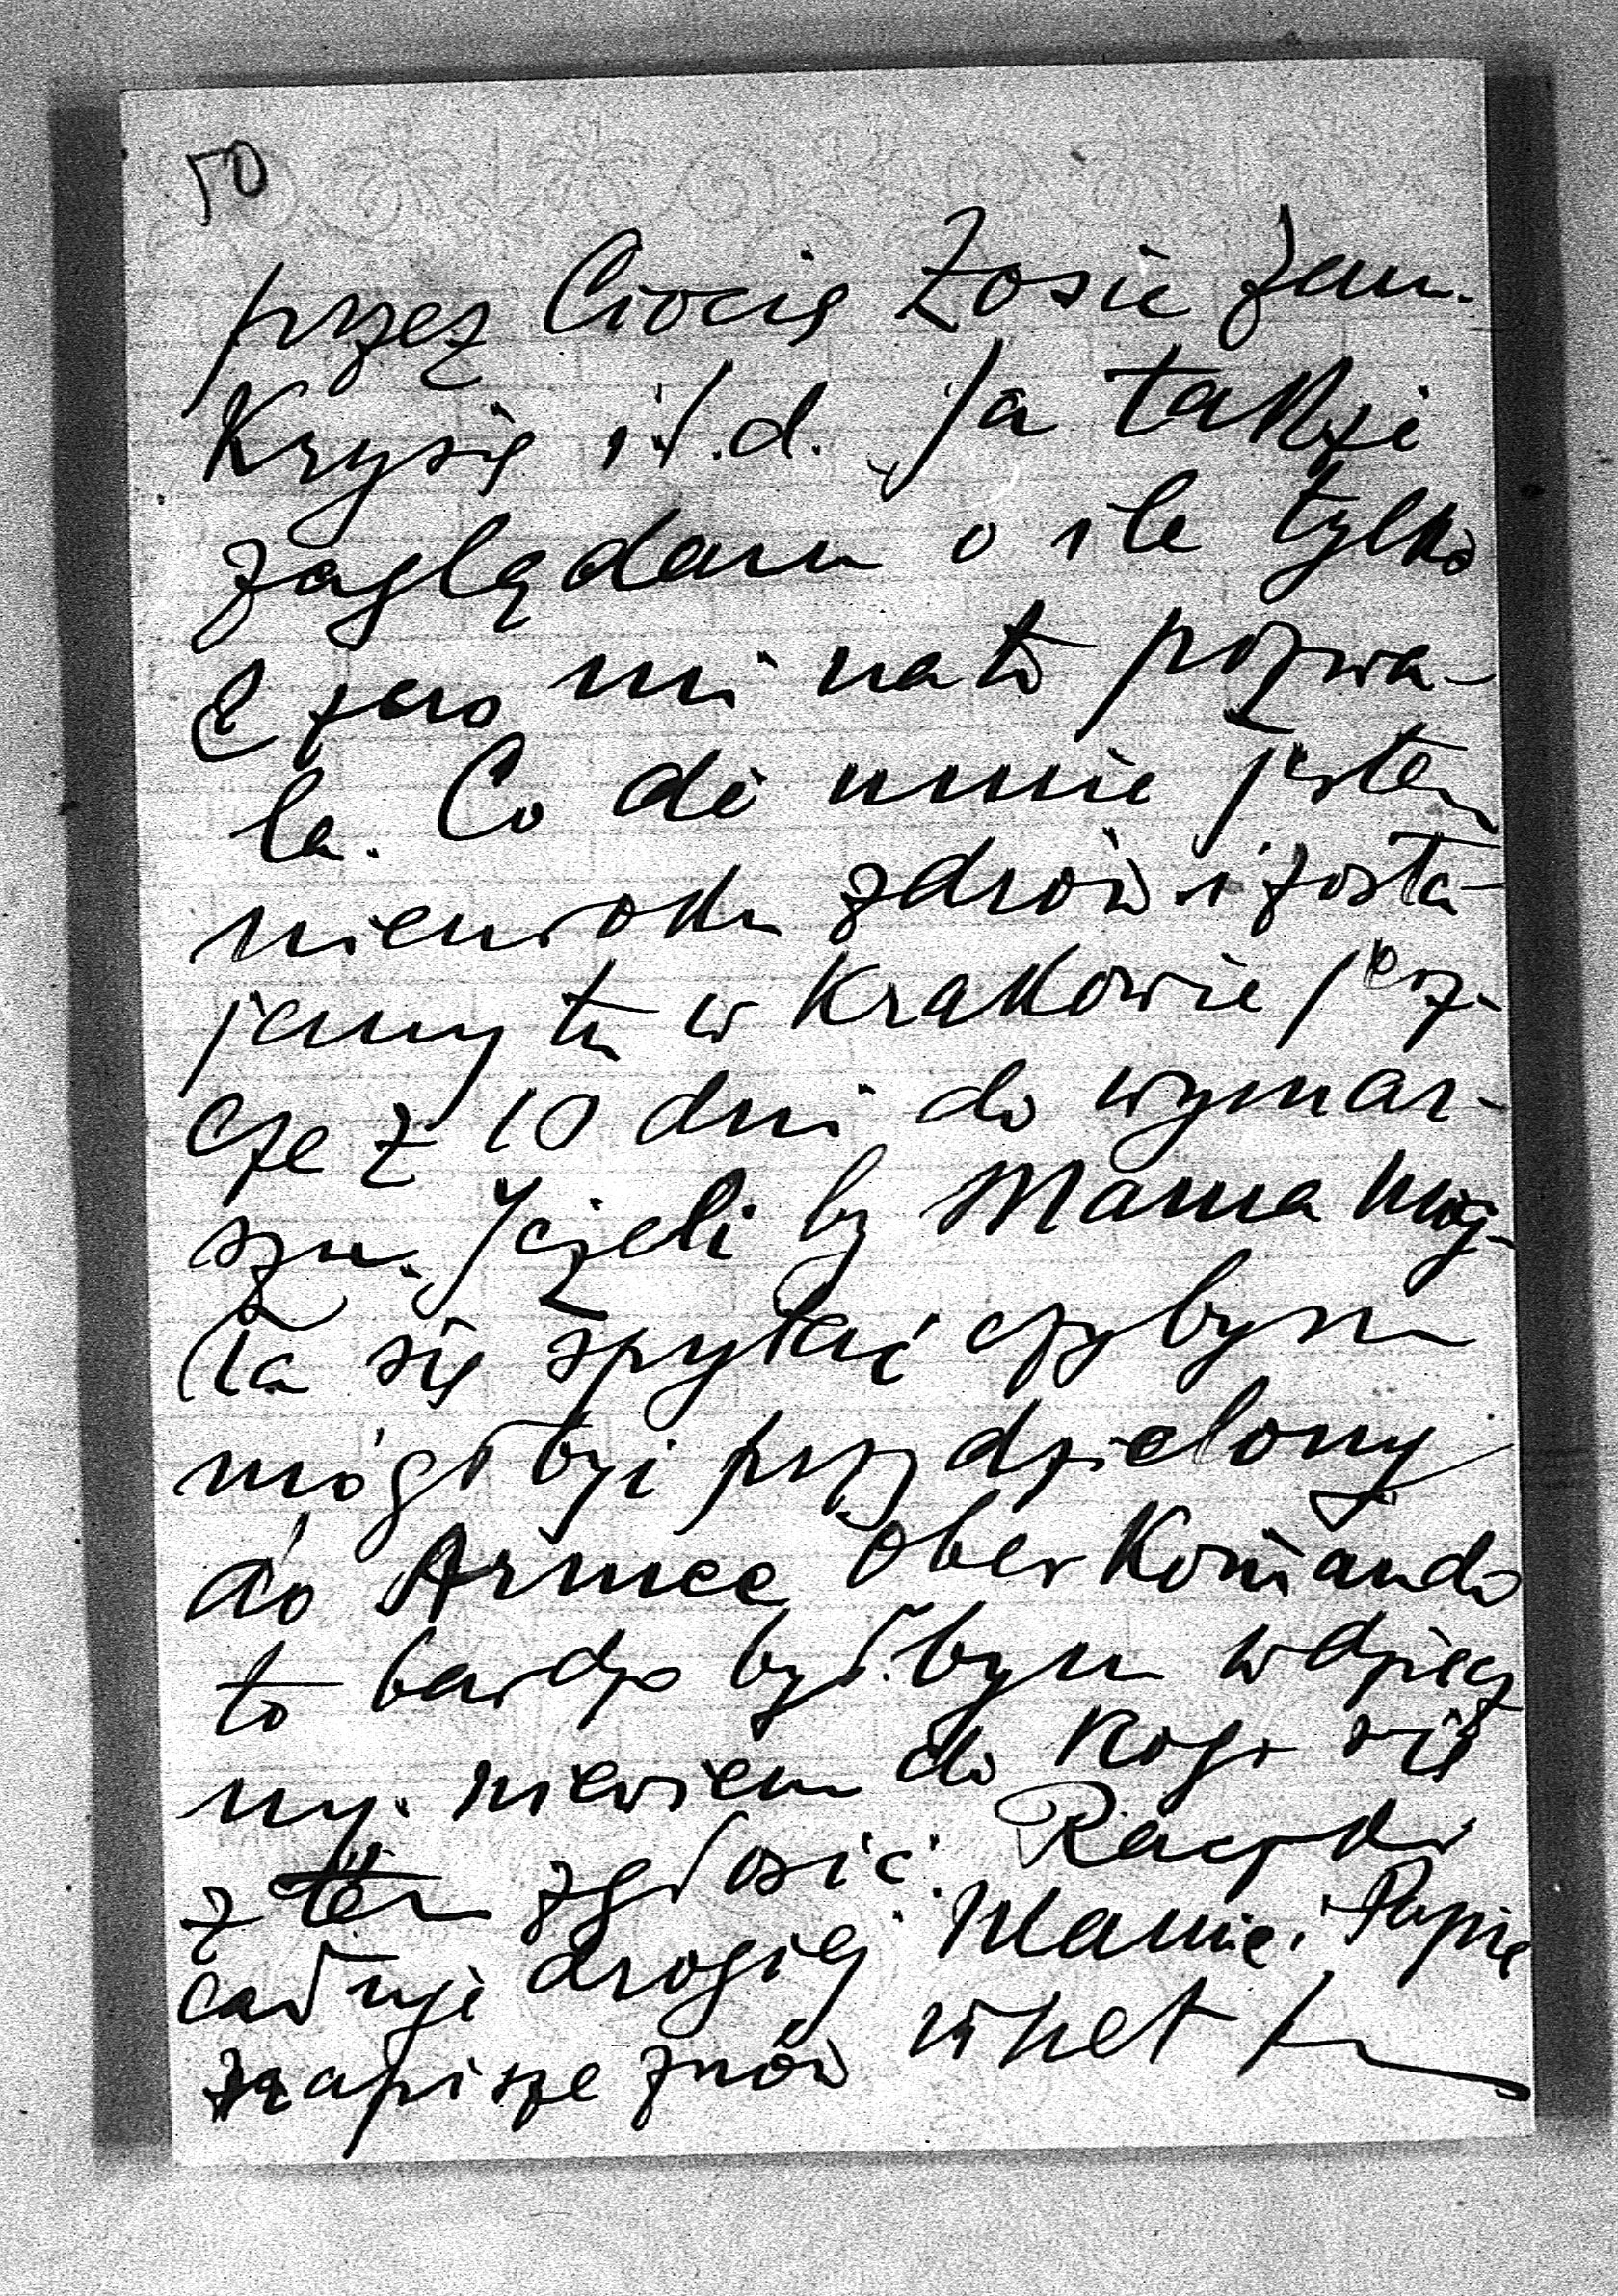 50
przez Ciocię Zosię Zam.
Krysię i t.d. Ja także
zaglądam o ile tylko
czas mi na to pozwa-
la. Co do mnie jestem
nieuroku zdrów i zosta-
jemy tu w Krakowie jesz-
cze z 10 dni do wymar-
szu. Jeżeli by Mama mog-
ła się spytać czybym
mógł być przydzielony
do Armee Ober Komando
to bardzo byłbym wdzięcz
ny. niewiem do kogo się
z tem zgłosić. Rączki
całuję drogiej Mamie i Papie
zapiszę znów wnet